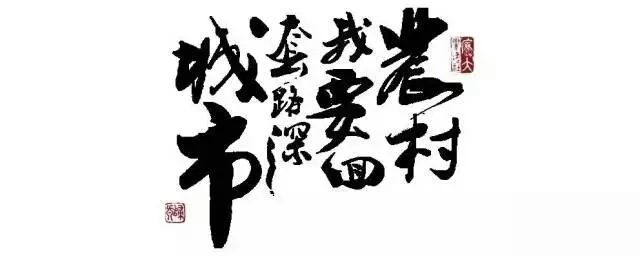 城市
套路深
我要回
農村